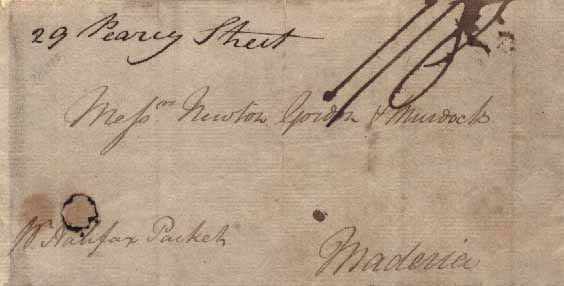 29 Pearcy Street
Messrs Newton Gordon & Murdock
Pr Halifax Packet
Maderia